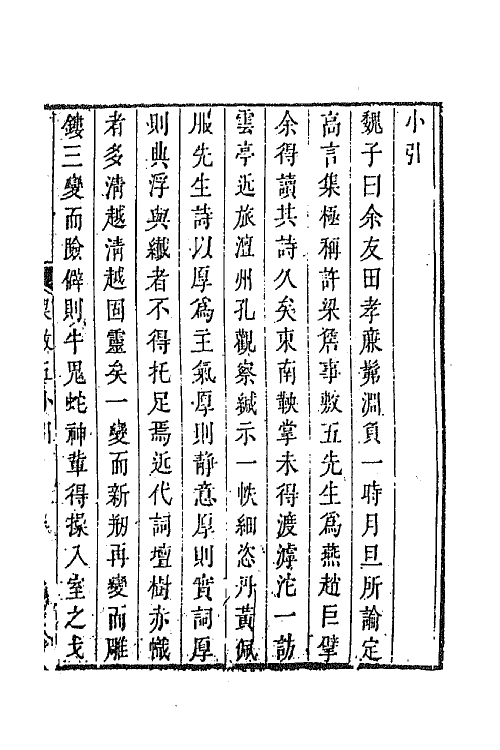 小引
魏子曰余友田孝廉髴淵負一時月旦所論定
高言集極稱許梁詹事敷五先生為燕趙巨擘
余得讀其詩久矣東南鞅掌未得渡滹沱一訪
雲亭近旅澶州孔觀察緘示一帙細恣丹黃佩
服先生詩以厚為主氣厚則靜意厚則實詞厚
則典浮與纖者不得托足焉近代詞壇樹赤幟
者多清越清越固靈矣一變而新剏再變而雕
鏤三變而險僻則牛鬼蛇神輩得操入室之戈